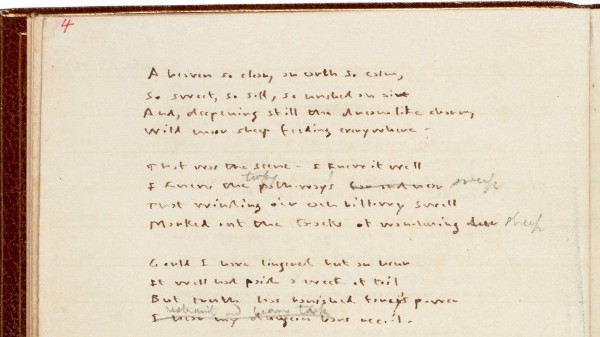 4
A heaven so clear, an earth so calm,
So sweet, so soft, so hushed an air
And, deepening still the dreamlike charm,
Wild moor sheep feeding everywhere -
That was the scene - I knew it well
turfy
I knew the path-way's far and near sweep
That winding o'er each billowy swell
Marked out the tracks of wandering deer sheep
Could I have lingered but an hour
It well had paid a week of toil
But truth has banished fancy's power
restraint and heavy task
I hear my dungeon bars recoil -